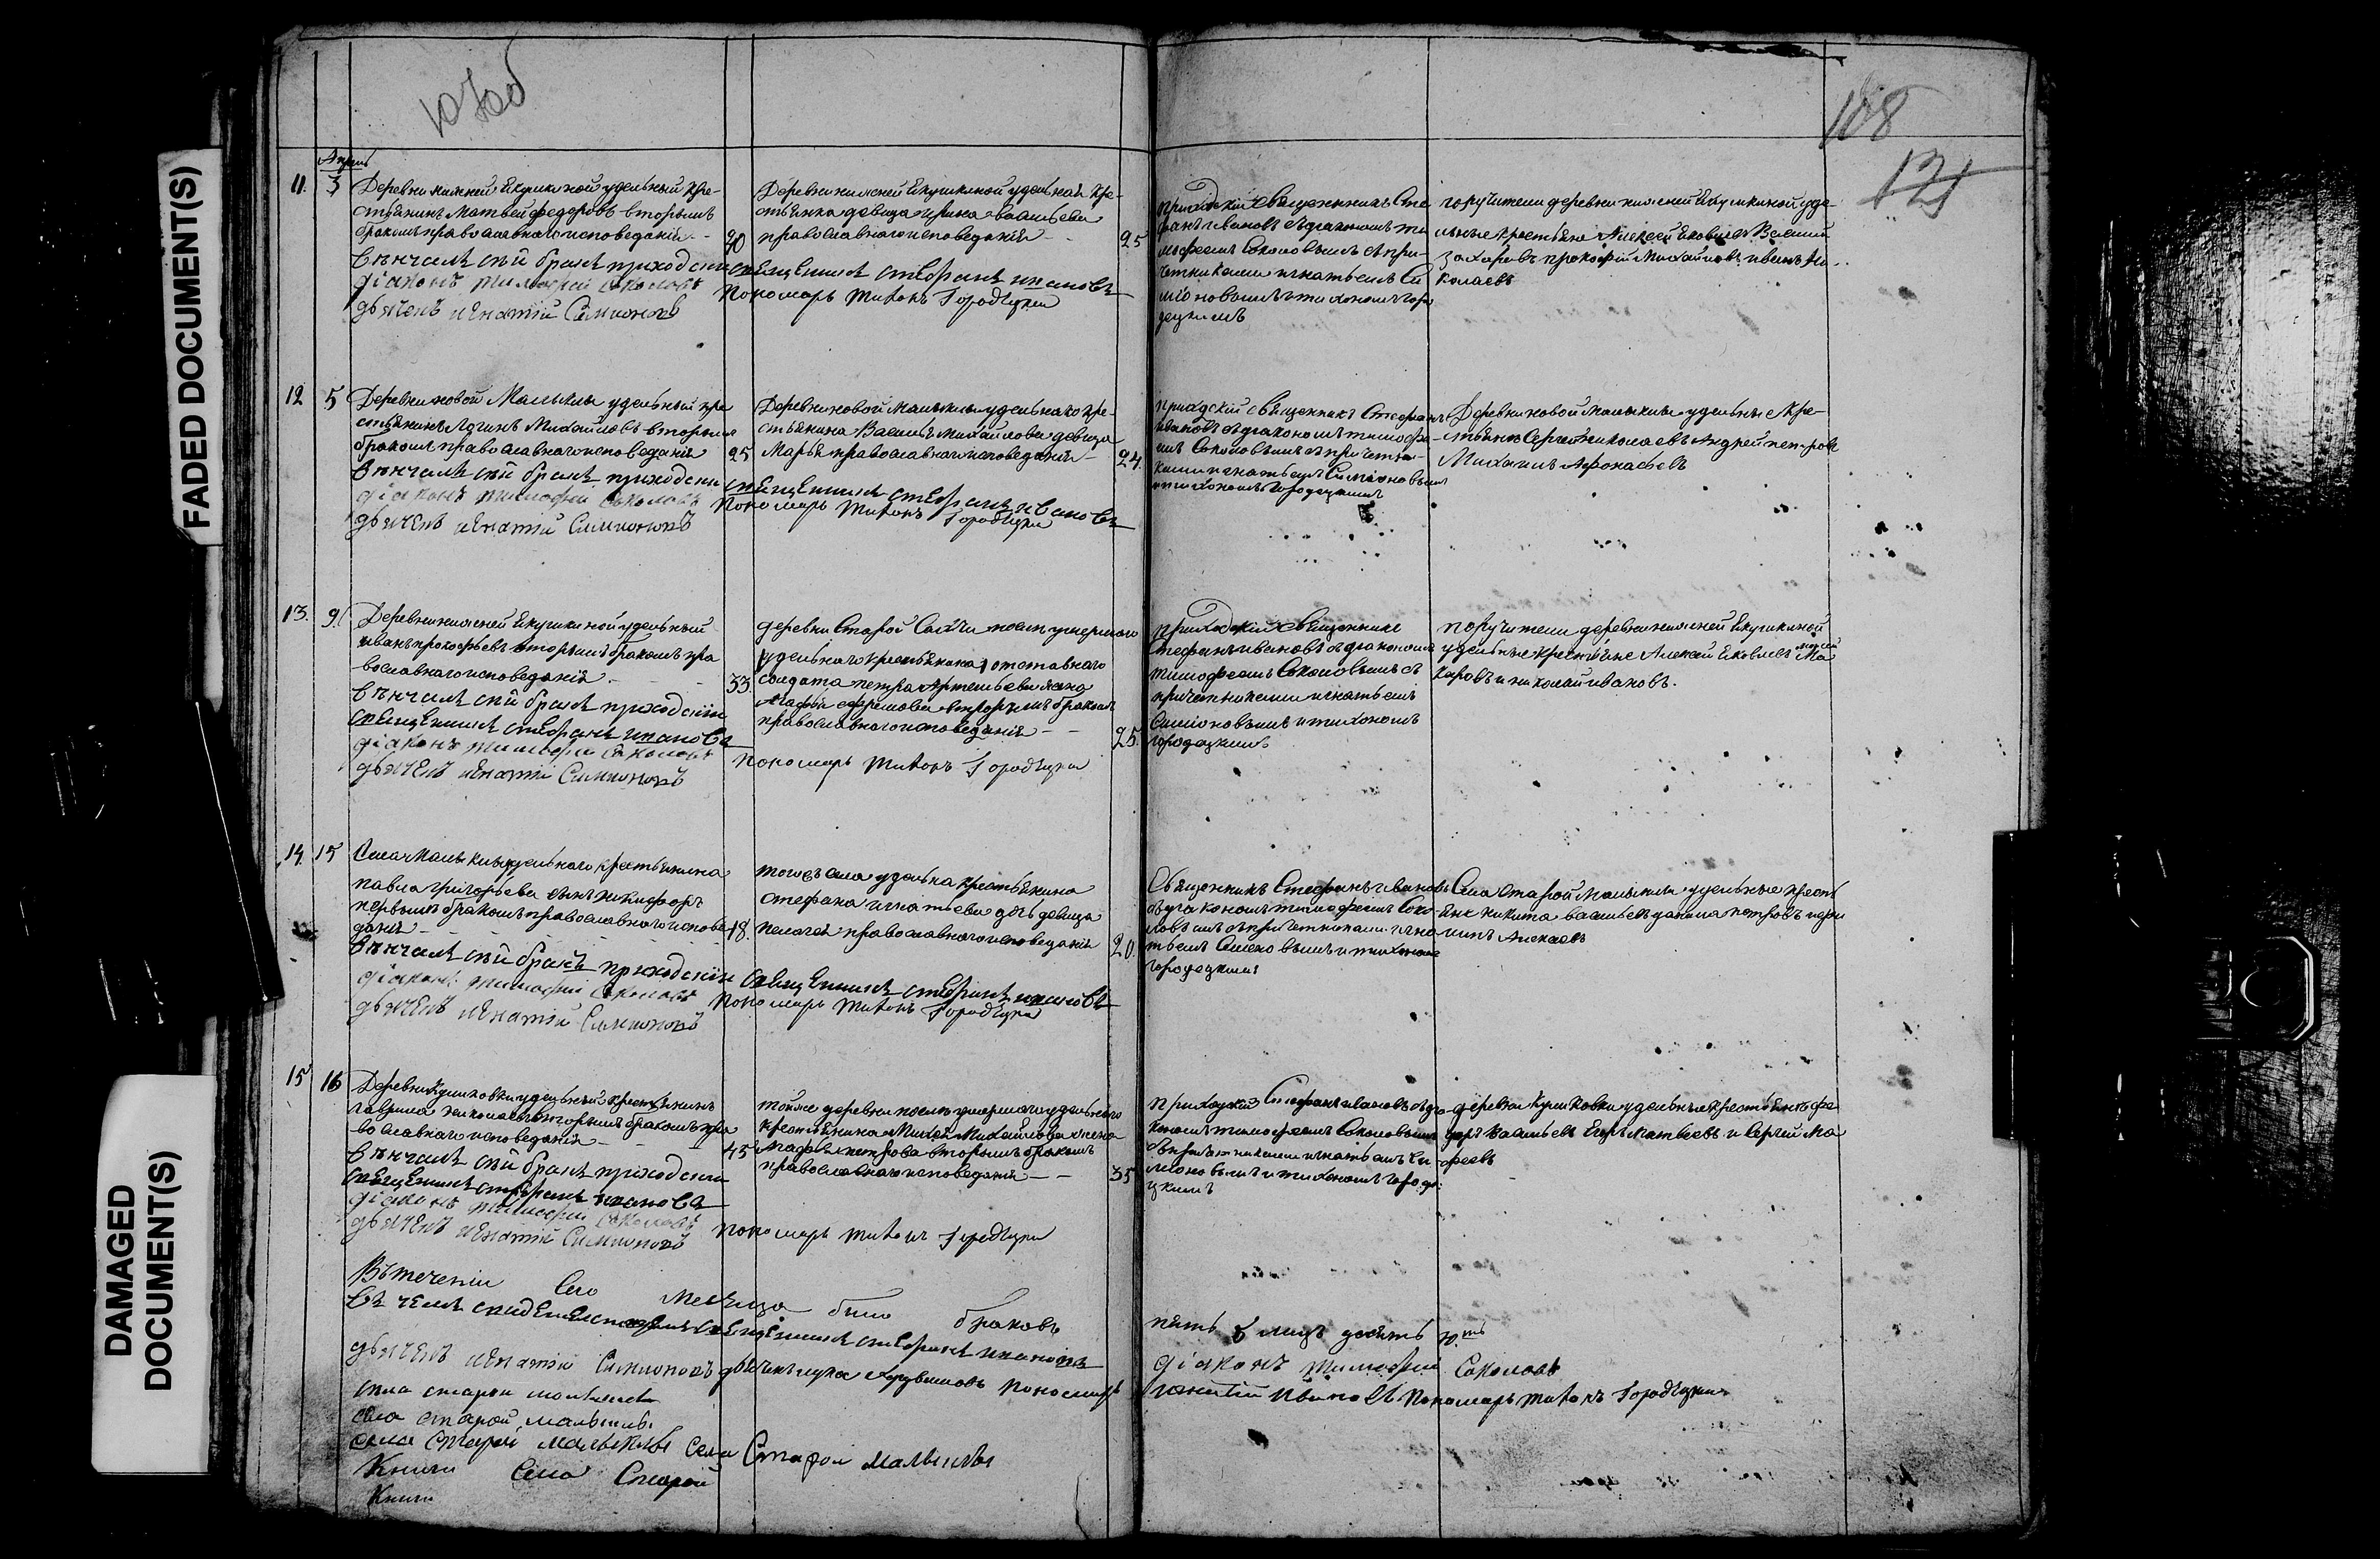 FADED DOCUMENT(S)
DAMAGED
DOCUMENT(S)
107об
108
121
Апрель
11.
3
Деревни нижней Якушкиной удельный кре-
стьянинъ Матвей федоровъ вторымъ
бракомъ православнаго исповеданія
Вѣнчалъ сей бракъ приходскій священникъ стефанъ ивановъ
діаконъ тимофей соколовъ
дьячекъ игнатій Симионовъ
Пономарь Тихонъ Городецкій
Деревни нижней Якушкиной удельнай кре-
стьянка девица ирина васильева
православнаго исповеданія
25
приходскій священникъ Сте
фанъ ивановъ съ діакономъ ти
мофеемъ Соколовымъ съ при-
четниками игнатьемъ Си
міоновымъ и тихономъ горо
децкимъ
поручители деревни нижней Якушкиной уде-
льные крестьяне Алексей Яковлевъ Василий
захаровъ прокофій Михайловъ иванъ Ни-
колаевъ
12
5
Деревни новой Малыклы удельный кре
стьянинъ Логинъ Михайловъ вторымъ
бракомъ православнаго исповеданія
25
Вѣнчалъ сей бракъ приходскій священникъ стефанъ ивановъ
діаконъ тимофей соколовъ
дьячекъ игнатій Симионовъ
Пономарь Тихонъ Городецкій
Деревни новой Малыклы удельнаго кре-
стьянина Василья Михайлова девица
Марья православнаго исповеданія
24.
приходскій священникъ Стефанъ
ивановъ съ діакономъ тимофе-
емъ Соколовымъ съ причетни-
ками игнатьемъ Симіоновымъ
и тихономъ Городецкимъ
Деревни новой малыклы удельные кре-
стьяне Сергей николаевъ Андрей петровъ
Михаилъ Афонасьевъ
13.
9.
Деревни нижней Якушкиной удельный
иванъ прокофьевъ вторымъ бракомъ пра
вославнаго исповеданія
33
Вѣнчалъ сей бракъ приходскій
священникъ стефанъ ивановъ
діаконъ тимофей соколовъ
дьячекъ игнатій Симионовъ
Пономарь Тихонъ Городецкій
деревни Старой после умершаго
удельнаго крестьянина отставнаго
солдата петра Артемьева жена
Агафья ефремова вторымъ бракомъ
православнаго исповеданія
25.
приходскій священникъ
Стефанъ ивановъ съ діакономъ
тимофеемъ Соколовымъ съ
причетниками игнатьемъ
Симіоновымъ и тихономъ
городецкимъ
поручители деревни нижней Якушкиной
удельные крестьяне Алексей Яковлевъ Ма
каровъ и николай ивановъ.
14.
15
Села Малыклы удельнаго крестьянина
павла григорьева сынъ никифоръ
первымъ бракомъ православнаго испове
данія
18.
Вѣнчалъ сей бракъ приходскій священникъ стефанъ ивановъ
діаконъ тимофей соколовъ
дьячекъ игнатій Симионовъ
Пономарь Тихонъ Городецкій
тогожъ села удельна крестьянина
стефана игнатьева дочь девица
пелагея православнаго исповеданія
20.
Священникъ Стефанъ ивановъ
съ діакономъ тимофеемъ Соко-
ловымъ съ причетниками игна
тьемъ Симіоновымъ и тихономъ
городецкимъ
Села Старой Малыклы удельные кресть
яне никита васильевъ данила петровъ
Алексеевъ
15
16
Деревни Кумковки удельный крестьянинъ
гаврила николаевъ вторымъ бракомъ пра
вославнаго исповеданія
45
Вѣнчалъ сей бракъ приходскій
священникъ стефанъ ивановъ
діаконъ тимофей соколовъ
дьячекъ игнатій Симионовъ
Пономарь Тихонъ Городецкій
тойже деревни после умершаго удельнаго
крестьянина Михайлова жена
Марфа петрова вторымъ бракомъ
православнаго исповеданія
35
приходскій Стефанъ ивановъ съ діа-
кономъ тимофеемъ Соколовымъ
съ причетниками игнатьемъ Си-
міоновымъ и тихономъ городе-
цкимъ
деревни Кумковки удельные крестьяне фе
доръ васильевъ Егоръ Матвеевъ и Сергей Ма
феевъ
Въ теченіи Сего Месяца было браковъ пять 5 лицъ десять 10ть
Въ чемъ свидетельствуемъ священникъ стефанъ ивановъ діаконъ тимофей Соколовъ
дьячекъ игнатій Симионовъ дьячекъ Пономарь игнатій Ивановъ Пономарь Тихонъ Городецкій
села старой малыклы
села старой малыклы
села старой малыклы Села Старой Малыклы
Книги Села Старой
Книги